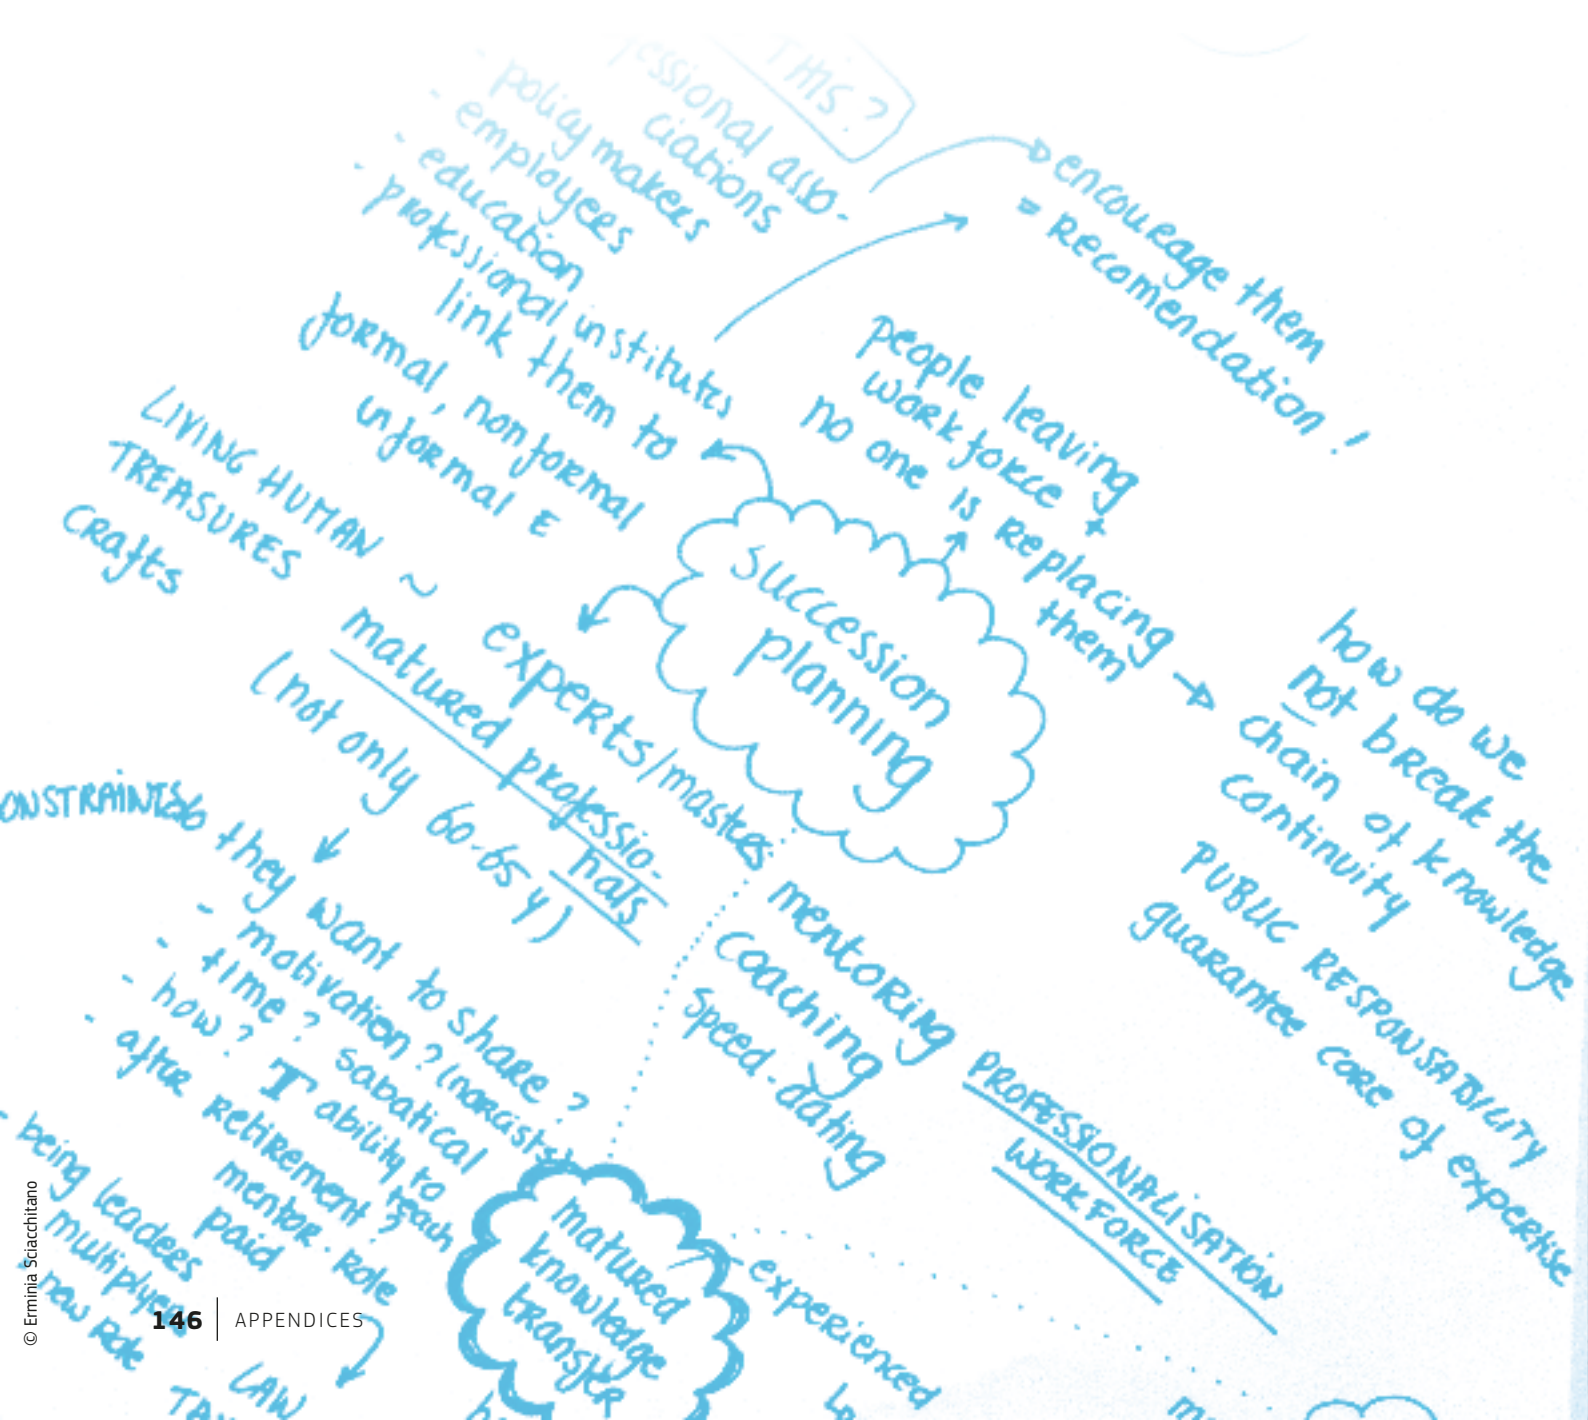 THIS?
essional asso-
ciations
- policy makers
- employers
- education
- professional institutes
link them to
formal, nonformal
informal E
encourage them
= Recomendation!
people leaving
workforce +
no one is replacing
them
how do we
not break the
chain of knowledge
continuity
PUBLIC RESPONSABILITY
guarantee core of expertise
succession
planning
LIVING HUMAN
TREASURES
crafts
~ experts/masters
matured professio-
nals
(not only 60-65 y)
ONSTRAINTS
do they want to share?
- motivation? (narcists)
- time? sabatical
- how? ability to
teach
- after retirement?
mentor-role
paid
- being leaders
multiplyers
- new role
LAW
mentoring
coaching
speed-dating
PROFESSIONALISATION
WORKFORCE
matured
knowledge
transfer
experienced
© Erminia Sciacchitano
146 APPENDICES